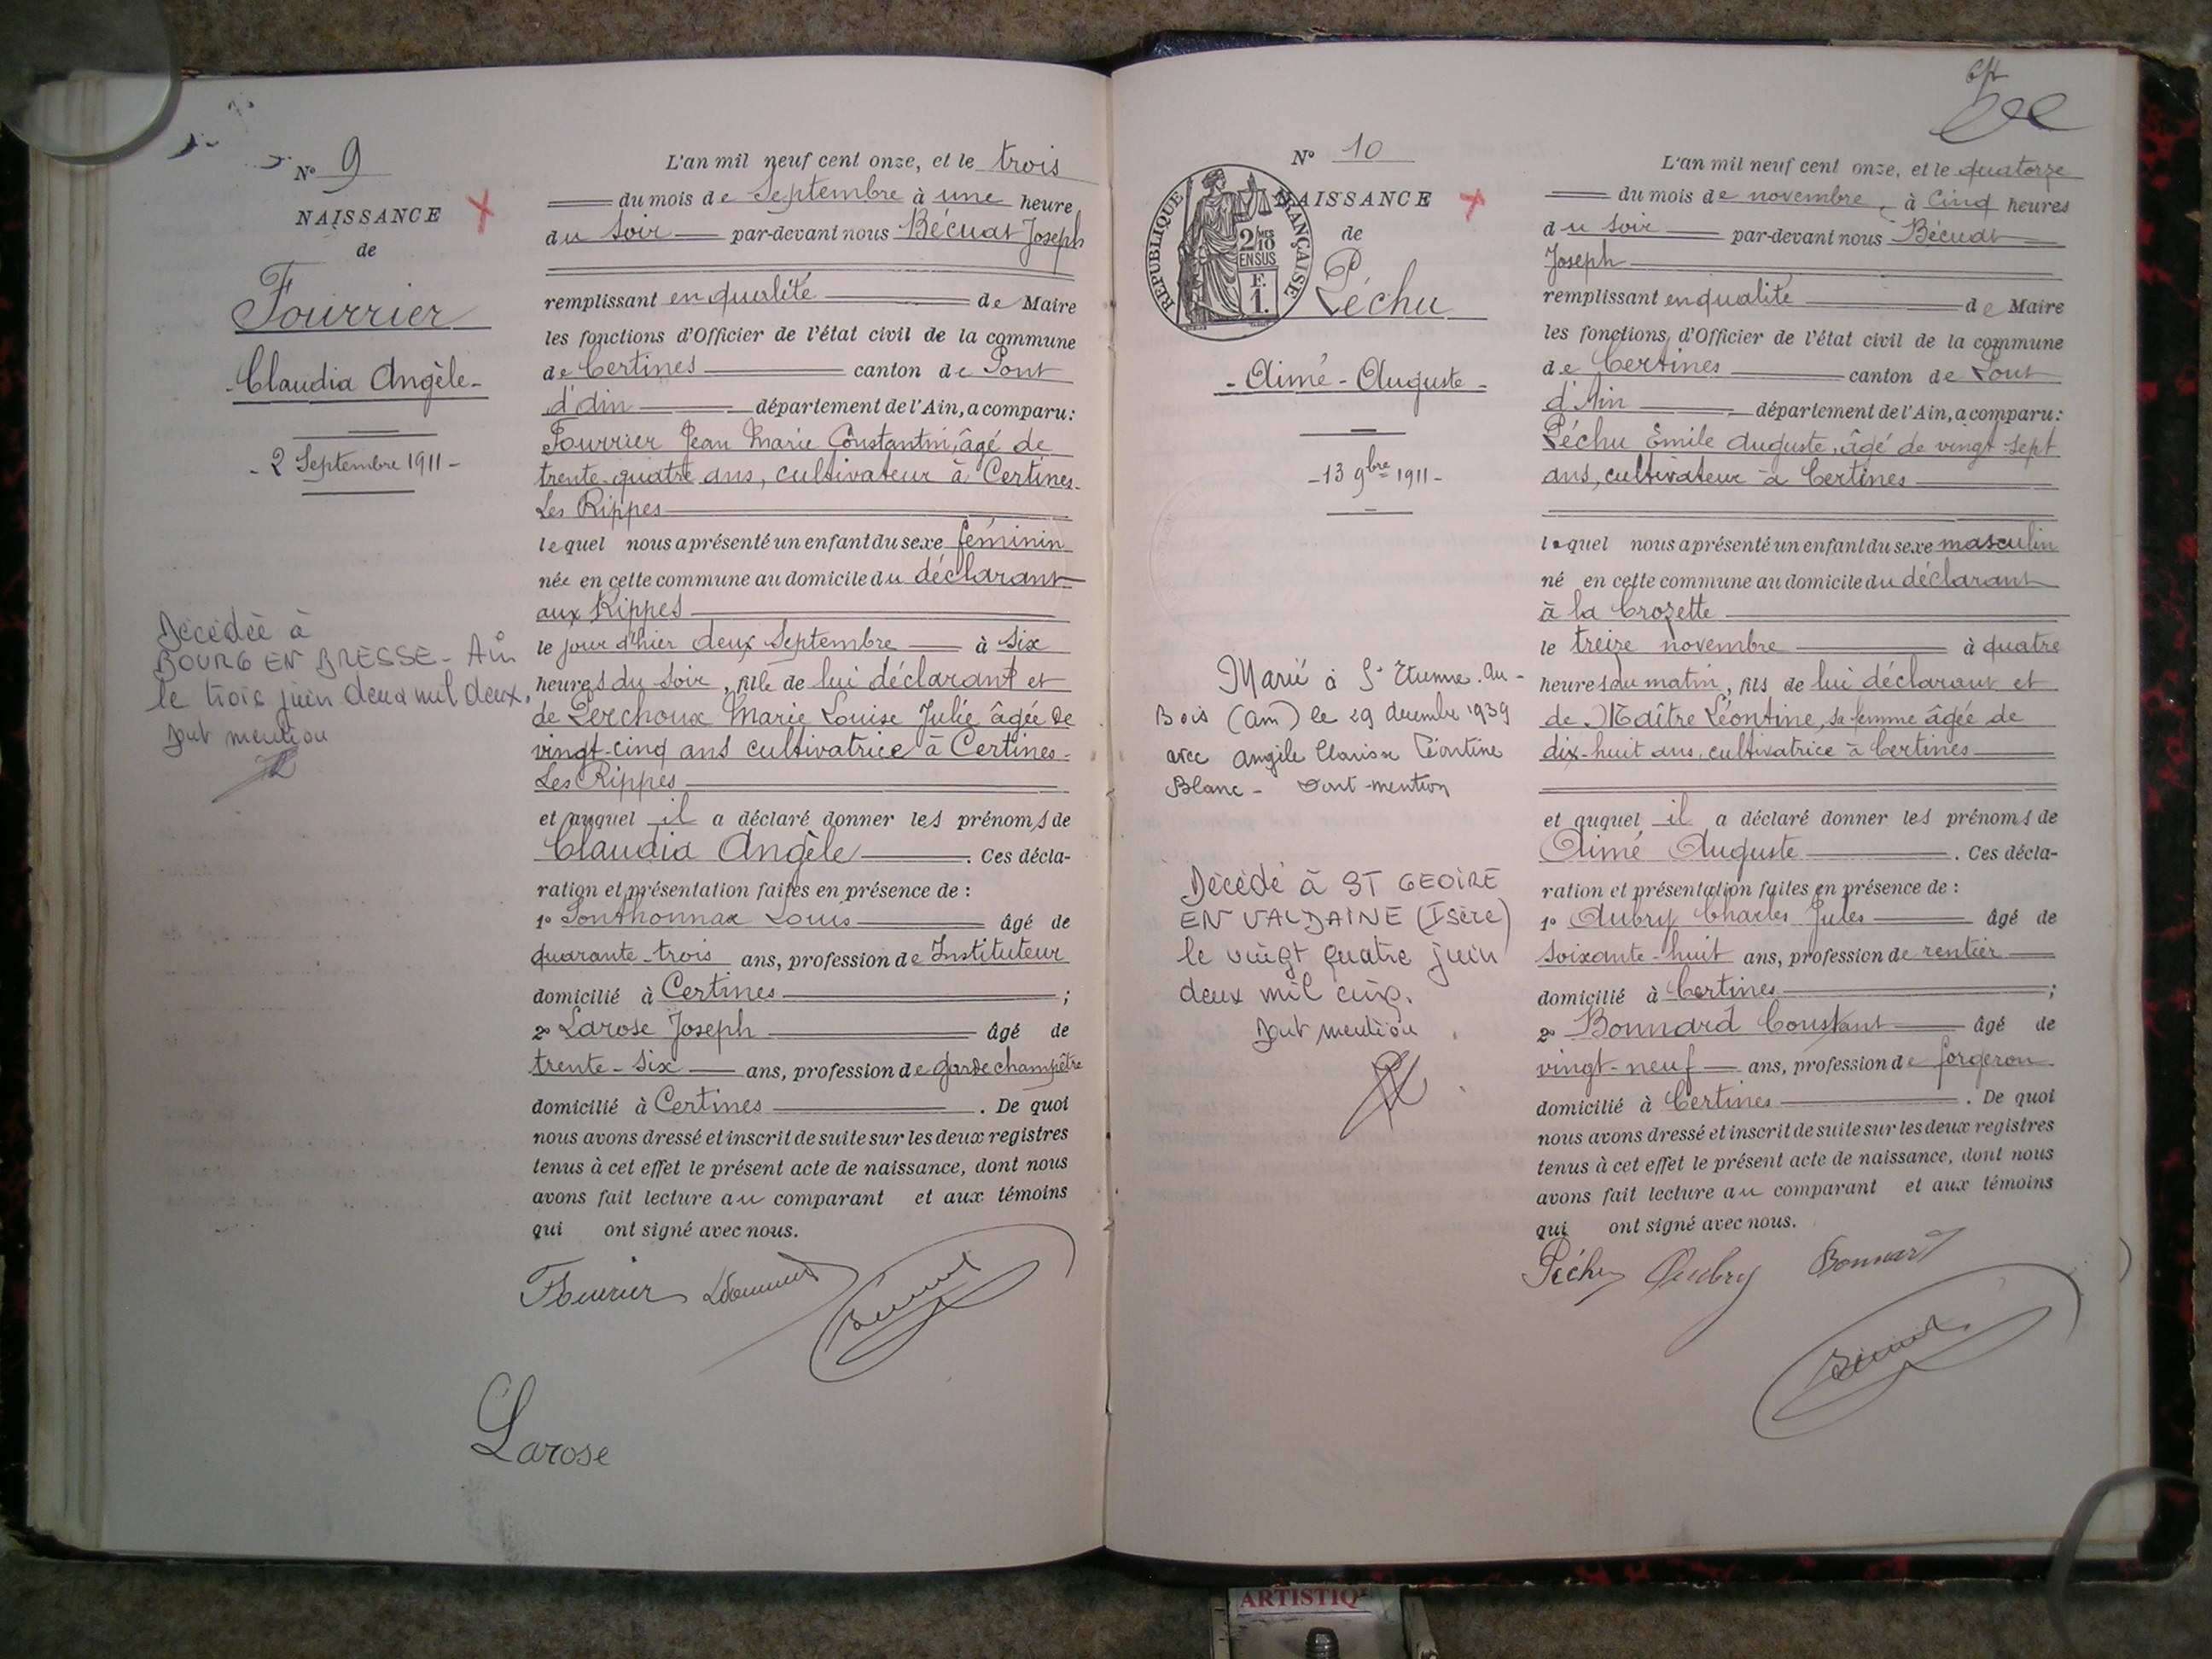 N° 9
NAISSANCE
de
Fourrier
Claudia Angèle
- 2 Septembre 1911 -
Décédée à
BOURG EN BRESSE - Ain
le trois juin deux mil deux.
Dont mention
L'an mil neuf cent onze, et le trois
du mois de Septembre à une heure
du soir par-devant nous Bécuat Joseph
remplissant en qualité de Maire
les fonctions d'Officier de l'état civil de la commune
de Certines canton de Pont
d'Ain département de l'Ain, a comparu:
Fourrier Jean Marie Constantin, âgé de
trente-quatre ans, cultivateur à Certines-
Les Rippes
lequel nous a présenté un enfant du sexe féminin
née en cette commune au domicile du déclarant
aux Rippes
le jour d'hier deux Septembre à six
heures du soir, fille de lui déclarant et
de Perchoux Marie Louise Julie âgée de
vingt-cinq ans cultivatrice à Certines-
Les Rippes
et auquel il a déclaré donner les prénoms de
Claudia Angèle. Ces décla-
ration et présentation faites en présence de :
1° Ponthonnax Louis âgé de
quarante-trois ans, profession de Instituteur
domicilié à Certines ;
2° Larose Joseph âgé de
trente-six ans, profession de garde champêtre
domicilié à Certines. De quoi
nous avons dressé et inscrit de suite sur les deux registres
tenus à cet effet le présent acte de naissance, dont nous
avons fait lecture au comparant et aux témoins
qui ont signé avec nous.
Fourrier
Larose
N° 10
NAISSANCE
de
RÉPUBLIQUE FRANÇAISE
2/10
EN SUS
F.
1.
Péchu
- Aimé - Auguste -
- 13 9bre 1911 -
Marié à St Etienne-du-
Bois (Ain) le 29 décembre 1939
avec Angèle Clarisse Léontine
Blanc - Dont mention
Décédé à ST GEOIRE
EN VALDAINE (Isère)
le vingt quatre juin
deux mil cinq.
Dont mention
L'an mil neuf cent onze, et le quatorze
du mois de novembre, à cinq heures
du soir par-devant nous Bécuat
Joseph
remplissant en qualité de Maire
les fonctions d'Officier de l'état civil de la commune
de Certines canton de Pont
d'Ain département de l'Ain, a comparu:
Péchu Emile Auguste, âgé de vingt-sept
ans, cultivateur à Certines
lequel nous a présenté un enfant du sexe masculin
né en cette commune au domicile du déclarant
à la Crozette
le treize novembre à quatre
heures du matin, fils de lui déclarant et
de Maître Léontine, sa femme âgée de
dix-huit ans, cultivatrice à Certines
et auquel il a déclaré donner les prénoms de
Aimé Auguste. Ces décla-
ration et présentation faites en présence de :
1° Aubry Charles Jules âgé de
soixante-huit ans, profession de rentier
domicilié à Certines ;
2° Bonnard Constant âgé de
vingt-neuf ans, profession de forgeron
domicilié à Certines. De quoi
nous avons dressé et inscrit de suite sur les deux registres
tenus à cet effet le présent acte de naissance, dont nous
avons fait lecture au comparant et aux témoins
qui ont signé avec nous.
Péchu Aubry Bonnard
ARTISTIQ